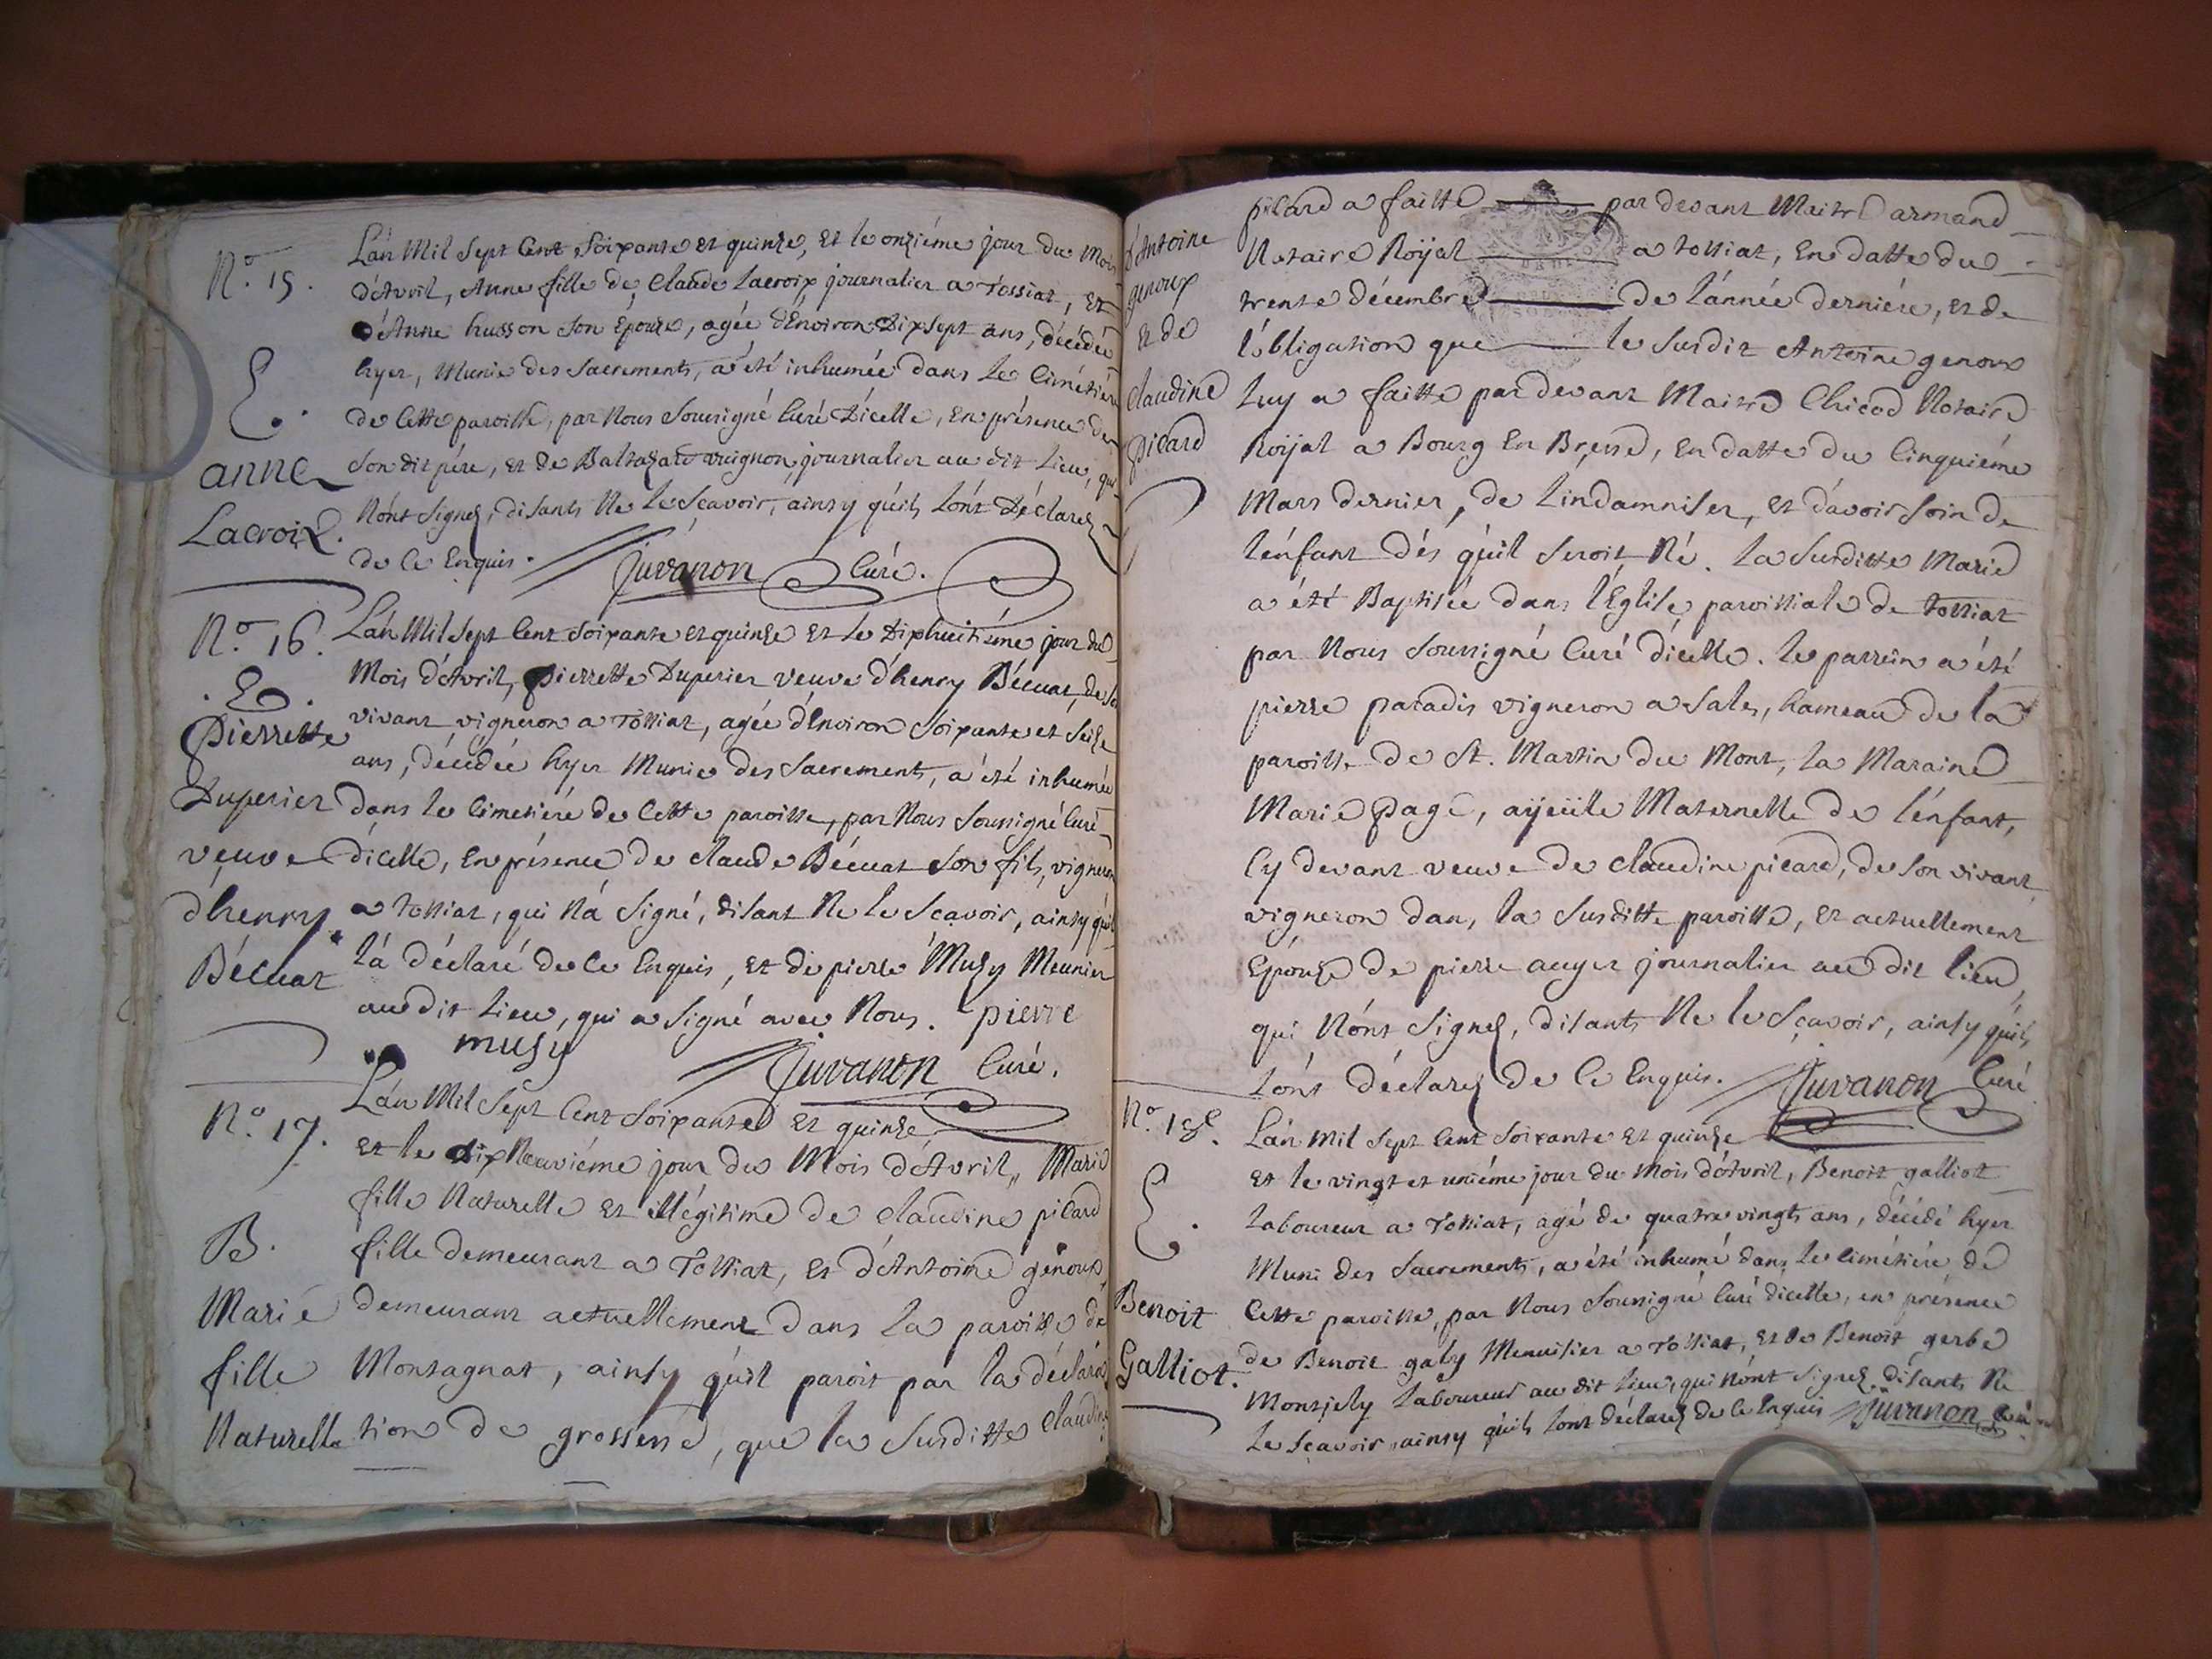 N.° 15.
E.
anne
Lacroix.
L'an Mil Sept Cent Soixante et quinze, Et le onziéme jour du Mois
d'Avril, Anne fille de Claude Lacroix journalier a Tossiat, Et
d'Anne husson son Epouse, agée d'Environ Dixsept ans, décédée
hyer, Munie des Sacrements, a été inhumée dans le Cimétiére
de Cette paroisse, par Nous Sousigné Curé D'icelle, En présence de
Son dit pére, et de Baltazard vuignon journalier au dit Lieu, qui
N'ont Signez, disants Ne le Sçavoir, ainsy qu'ils L'ont Déclarez
de Ce Enquis. Juvanon Curé.
N.° 16.
E.
Pierrette
Duperier
veuve
d'henry
Bécuat
L'an Mil Sept Cent Soixante et quinze et le Dixhuitiéme jour du
Mois d'Avril, Pierrette Duperier veuve d'henry Bécuat, de Son
vivant vigneron a Tossiat, agée d'Environ Soixante et Seize
ans, décédée hyer Munie des Sacrements, a été inhumée
dans le Cimetiére de Cette paroisse, par Nous Soussigné Curé
d'icelle, En présence de claude Bécuat Son fils, vigneron
a Tossiat, qui N'a Signé, disant Ne le Sçavoir, ainsy qu'il
L'a déclaré de Ce Enquis, et de pierre Musy Meunier
au dit Lieu, qui a Signé avec Nous. pierre
musy Juvanon Curé.
N.° 17.
B.
Marie
fille
Naturelle
L'an Mil Sept Cent Soixante et quinze
et le dixNeuviéme jour du Mois d'Avril, Marie
fille Naturelle et illégitime de claudine picard
fille demeurant a Tossiat, et d'Antoine genoux,
demeurant actuellement dans la paroisse de
Montagnat, ainsy qu'il paroit par la déclara
tion de grossesse, que la Susditte claudine
d'Antoine
genoux
et de
claudine
picard
picard a faitte par devant Maitre armand
Notaire Roÿal a tossiat, En datte du
trente décembre de l'année derniére, et de
l'obligation que le Susdit Antoine genoux
Luy a faitte par devant Maitre Chicod Notaire
Roÿal a Bourg En Bresse, En datte du Cinquiéme
Mars dernier, de L'indamniser, et d'avoir Soin de
l'enfant dés qu'il Seroit Né. La Susditte Marie
a été Baptisée dans l'Eglise paroissiale de tossiat
par Nous Soussigné Curé d'icelle. le parrein a été
pierre paradis vigneron a Sales, hameau de la
paroisse de St. Martin du Mont, la Maraine
Marie Page, aÿeüle Maternelle de l'enfant,
Cy devant veuve de claudine picard, de Son vivant
vigneron dans la Susditte paroisse, et actuellement
Epouse de pierre auger journalier au dit lieu,
qui N'ont Signez, disants Ne le Sçavoir, ainsy qu'ils
L'ont déclarez de Ce Enquis. Juvanon Curé
N.° 18.
E.
Benoit
Galliot.
L'an Mil Sept Cent Soixante et quinze
et le vingt et uniéme jour du Mois d'Avril, Benoit galliot
Laboureur a Tossiat, agé de quatre vingts ans, décédé hyer
Muni des Sacrements, a été inhumé dans le Cimétiére de
Cette paroisse, par Nous Soussigné Curé d'icelle, en présence
de Benoit galy Menuisier a Tossiat, et de Benoit gerbe
Montjely Laboureur au dit Lieu, qui N'ont Signez, disants Ne
le Sçavoir, ainsy qu'ils L'ont déclarez de Ce Enquis Juvanon Curé